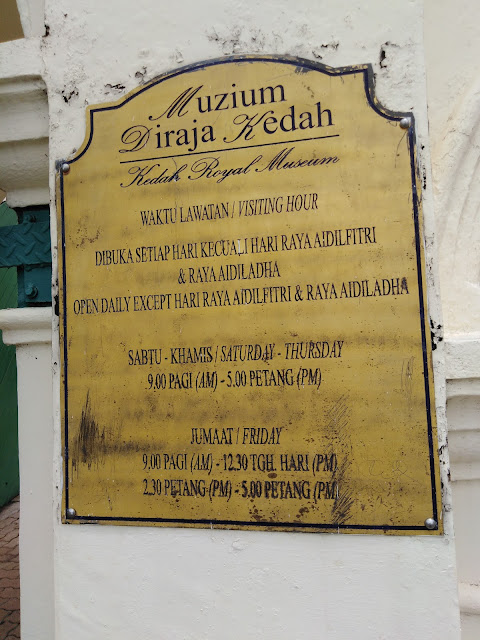 Muzium
Diraja Kedah
Kedah Royal Museum
WAKTU LAWATAN / VISITING HOUR
DIBUKA SETIAP HARI KECUALI HARI RAYA AIDILFITRI
& RAYA AIDILADHA
OPEN DAILY EXCEPT HARI RAYA AIDILFITRI & RAYA AIDILADHA
SABTU - KHAMIS / SATURDAY - THURSDAY
9.00 PAGI (AM) - 5.00 PETANG (PM)
JUMAAT / FRIDAY
9.00 PAGI (AM) - 12.30 TGH. HARI (PM)
2.30 PETANG (PM) - 5.00 PETANG (PM)